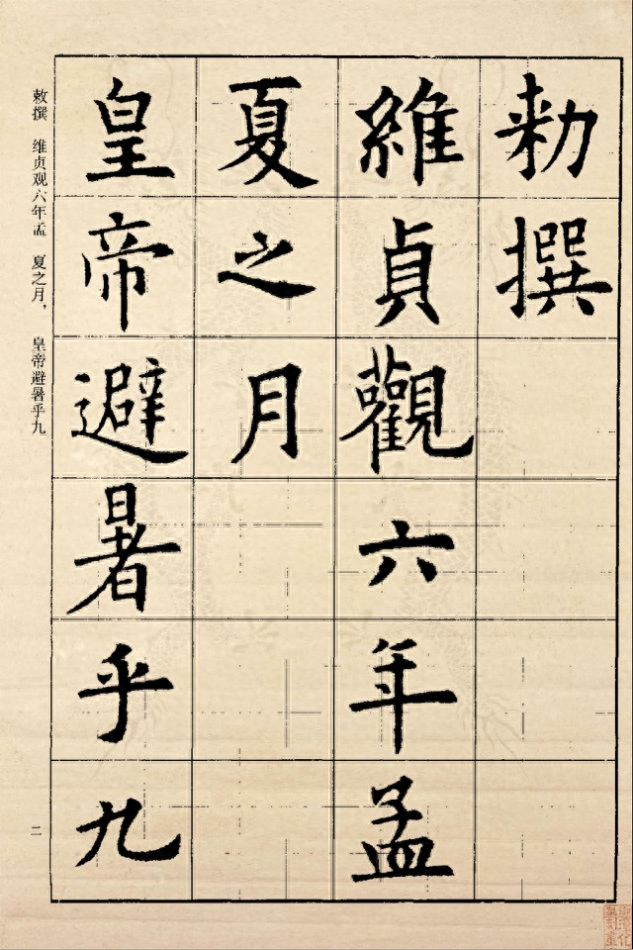 勑撰
維貞觀六年孟
夏之月
皇帝避暑乎九
敕撰 维贞观六年孟 夏之月， 皇帝避暑乎九
二